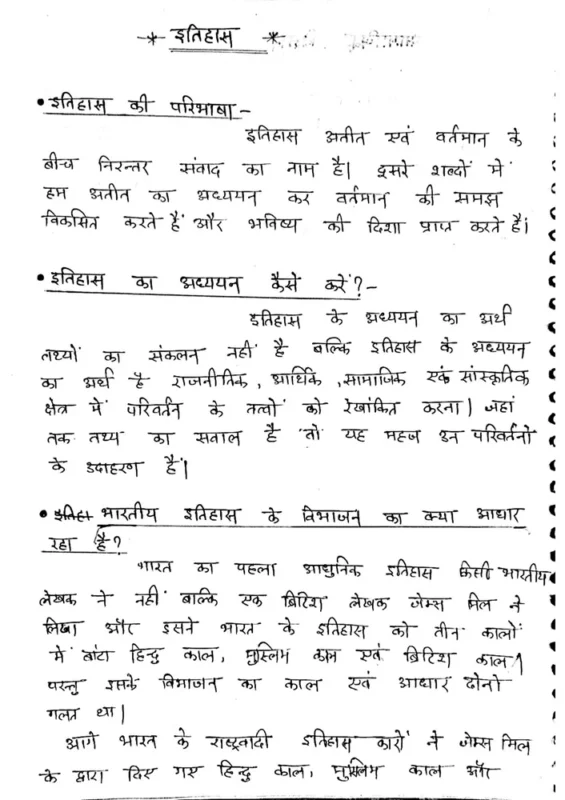 -*- इतिहास *-
• इतिहास की परिभाषा -
इतिहास अतीत एवं वर्तमान के
बीच निरन्तर संवाद का नाम है। दूसरे शब्दों में
हम अतीत का अध्ययन कर वर्तमान की समझ
विकसित करते हैं और भविष्य की दिशा प्राप्त करते है।
• इतिहास का अध्ययन कैसे करें? -
इतिहास के अध्ययन का अर्थ
तथ्यों का संकलन नहीं है बल्कि इतिहास के अध्ययन
का अर्थ है राजनीतिक, आर्थिक, सामाजिक एवं सांस्कृतिक
क्षेत्र में परिवर्तन के तत्वों को रेखांकित करना। जहां
तक तथ्य का सवाल है तो यह महज उन परिवर्तनो
के उदाहरण हैं।
• भारतीय इतिहास के विभाजन का क्या आधार
रहा है?
भारत का पहला आधुनिक इतिहास किसी भारतीय
लेखक ने नहीं बाल्कि एक ब्रिटिश लेखक जेम्स मिल ने
लिखा और इसने भारत के इतिहास को तीन कालों
में बांटा हिन्दु काल, मुस्लिम काल एवं ब्रिटिश काल।
परन्तु इसके विभाजन का काल एवं आधार दोनो
गलत था।
आगे भारत के राष्ट्रवादी इतिहास कारों ने जेम्स मिल
के द्वारा दिए गए हिन्दु काल, मुस्लिम काल और